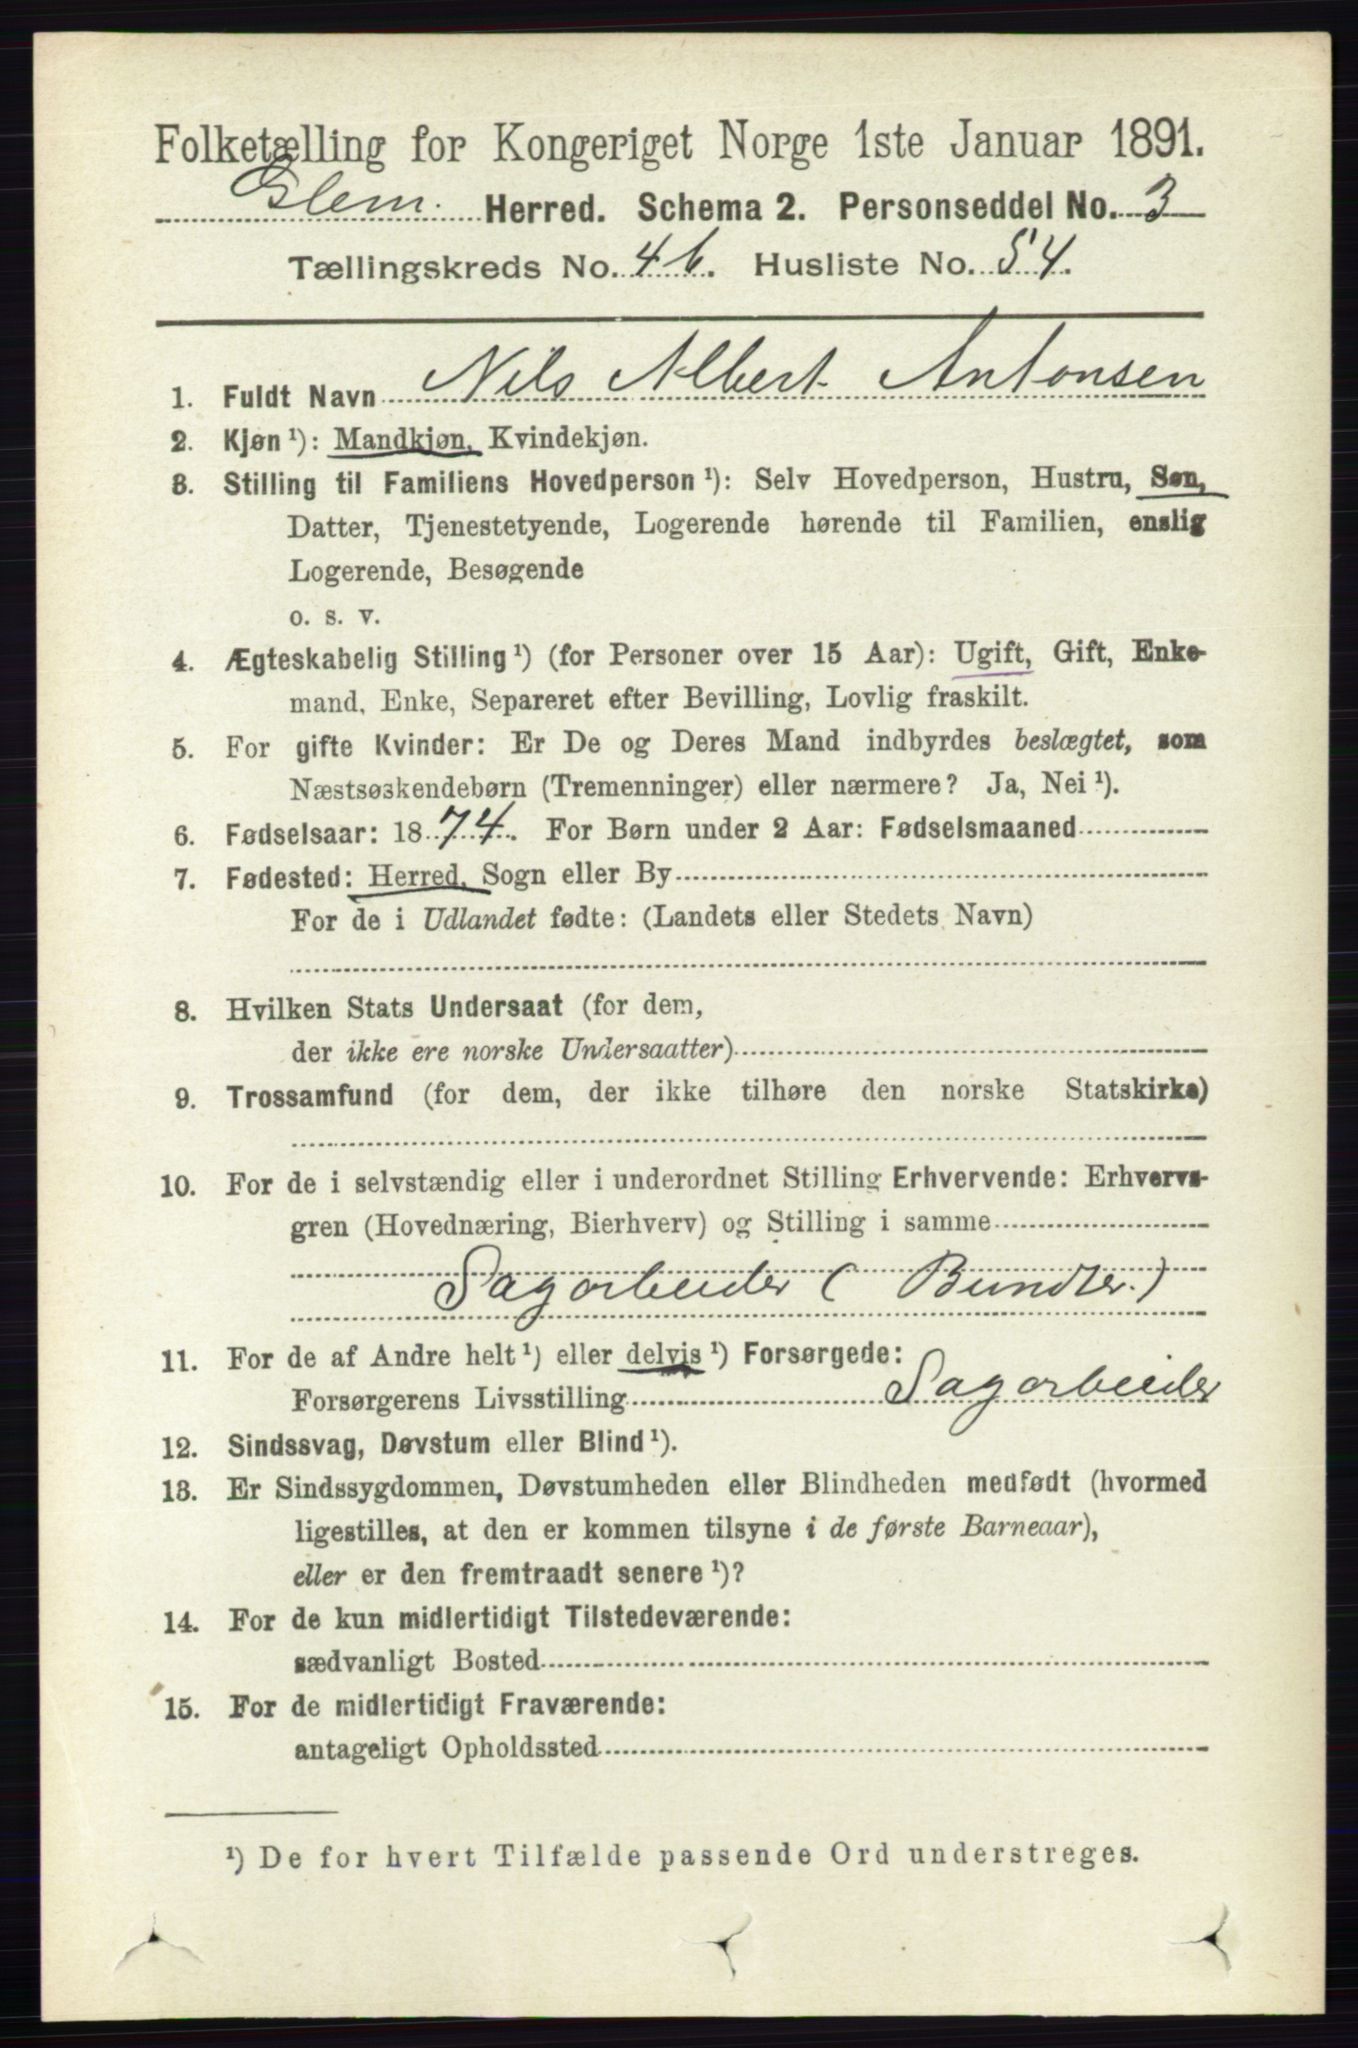 Folketælling for Kongeriget Norge 1ste Januar 1891.
Glem. Herred. Schema 2. Personseddel No. 3
Tællingskreds No. 46. Husliste No. 54.
1. Fuldt Navn Nils Albert Antonsen
2. Kjøn ¹): Mandkjøn, Kvindekjøn.
3. Stilling til Familiens Hovedperson ¹): Selv Hovedperson, Hustru, Søn,
Datter, Tjenestetyende, Logerende hørende til Familien, enslig
Logerende, Besøgende
o. s. v.
4. Ægteskabelig Stilling ¹) (for Personer over 15 Aar): Ugift, Gift, Enke-
mand, Enke, Separeret efter Bevilling, Lovlig fraskilt.
5. For gifte Kvinder: Er De og Deres Mand indbyrdes beslægtet, som
Næstsøskendebørn (Tremenninger) eller nærmere? Ja, Nei ¹).
6. Fødselsaar: 1874. For Børn under 2 Aar: Fødselsmaaned
7. Fødested: Herred, Sogn eller By
For de i Udlandet fødte: (Landets eller Stedets Navn)
8. Hvilken Stats Undersaat (for dem,
der ikke ere norske Undersaatter)
9. Trossamfund (for dem, der ikke tilhøre den norske Statskirke)
10. For de i selvstændig eller i underordnet Stilling Erhvervende: Erhvervs-
gren (Hovednæring, Bierhverv) og Stilling i samme
Sagarbeider ( Bundter.)
11. For de af Andre helt ¹) eller delvis ¹) Forsørgede:
Forsørgerens Livsstilling Sagarbeider
12. Sindssvag, Døvstum eller Blind ¹).
13. Er Sindssygdommen, Døvstumheden eller Blindheden medfødt (hvormed
ligestilles, at den er kommen tilsyne i de første Barneaar),
eller er den fremtraadt senere ¹)?
14. For de kun midlertidigt Tilstedeværende:
sædvanligt Bosted
15. For de midlertidigt Fraværende:
antageligt Opholdssted
¹) De for hvert Tilfælde passende Ord understreges.